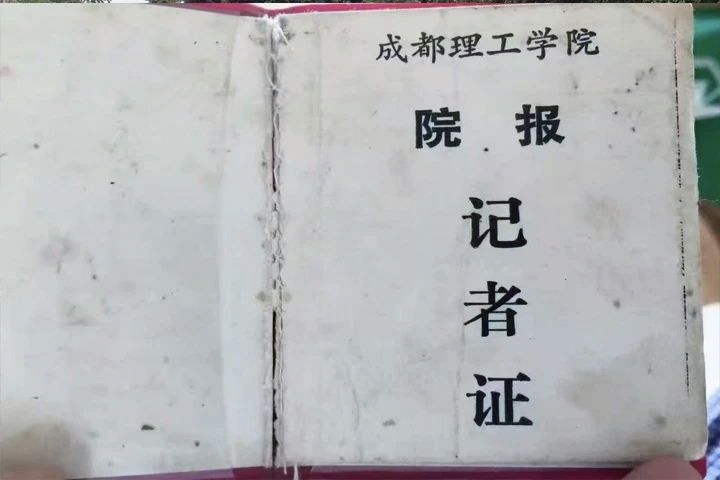 成都理工学院
院报
记
者
证